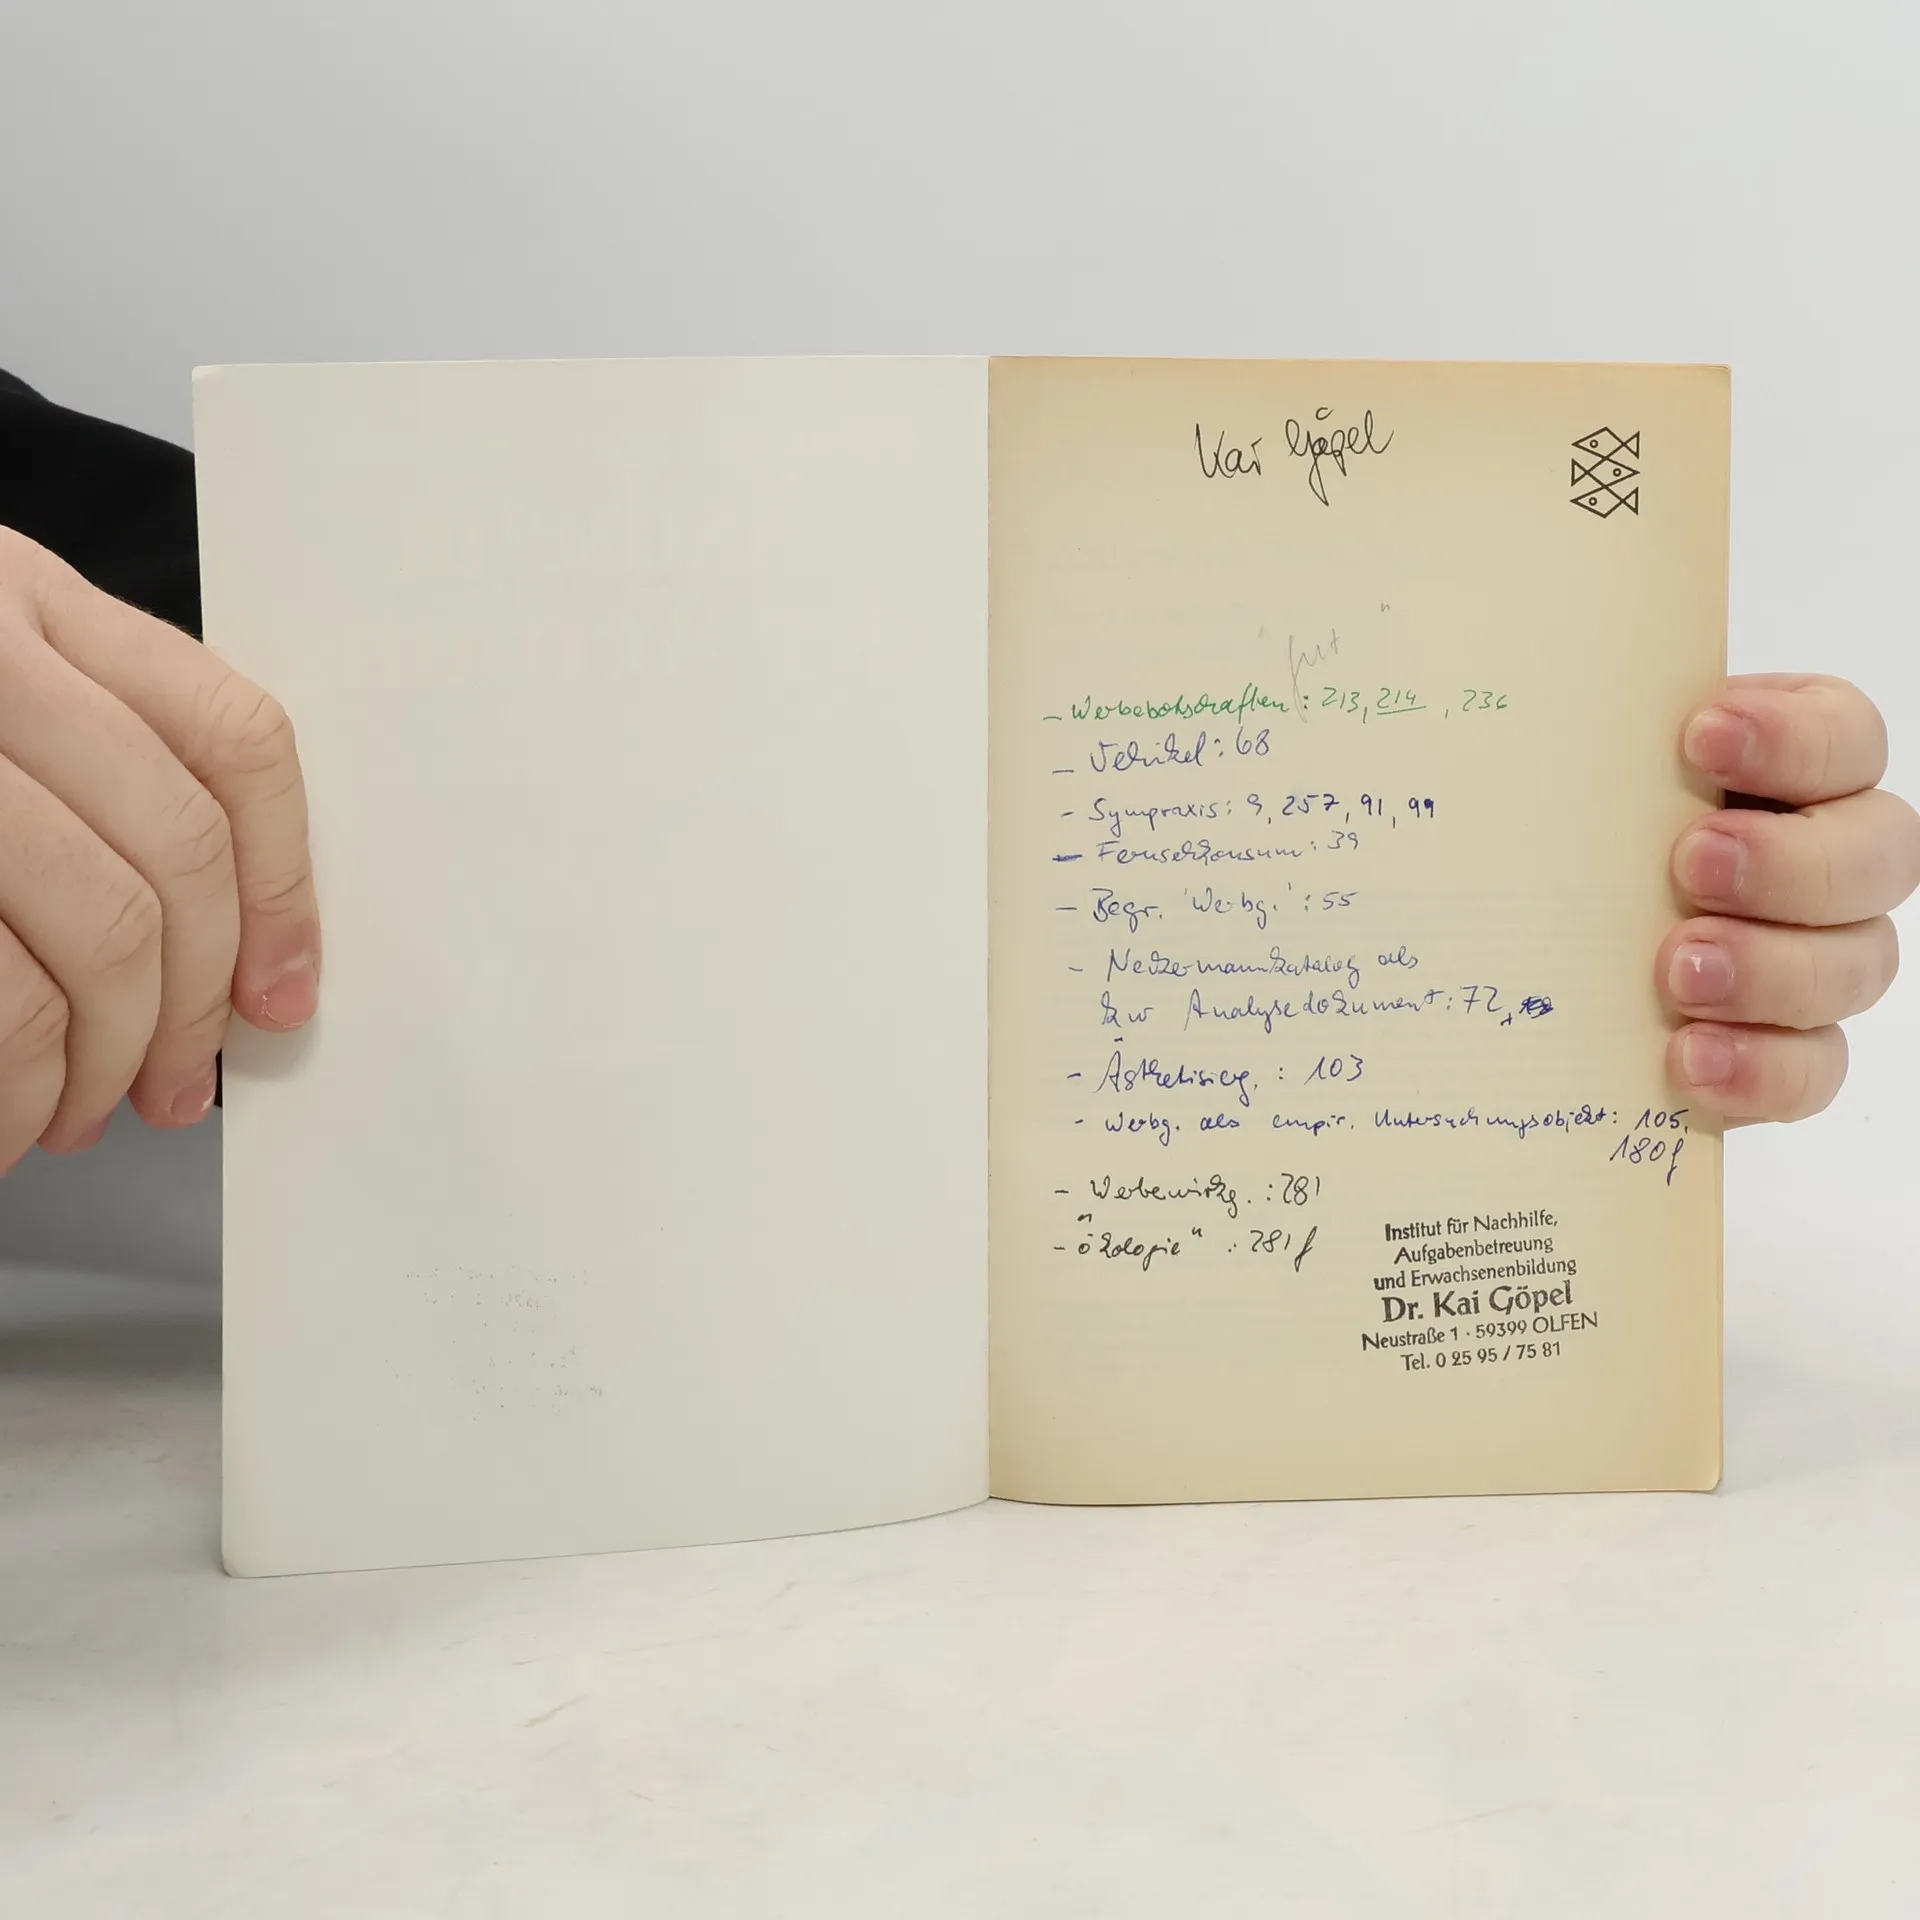 Kai Göpel
"gut"
– Werbebotschaften : 213, 214 , 236
– Vehikel : 68
– Sympraxis : 9, 257, 91, 99
– Fernsehkonsum : 39
– Begr. 'Werbg.' : 55
– Neckermannkatalog als
Analysedokument : 72
– Ästhetisierg. : 103
– Werbg. als empir. Untersuchungsobjekt : 105,
180f
– Werbewirkg. : 281
– "Ökologie" : 281f
Institut für Nachhilfe,
Aufgabenbetreuung
und Erwachsenenbildung
Dr. Kai Göpel
Neustraße 1 · 59399 OLFEN
Tel. 0 25 95 / 75 81